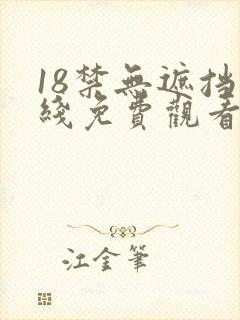 18禁無遮挡
綫免費觀看
江金筆